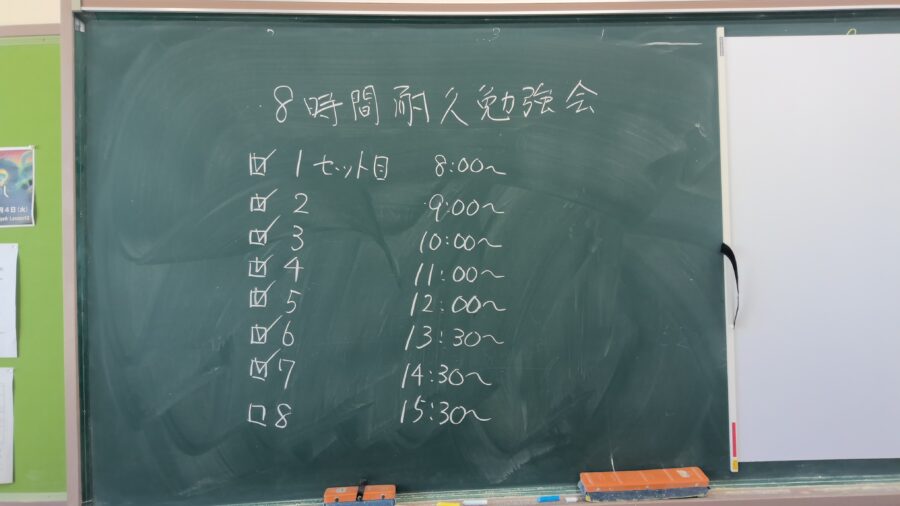 8時間耐久勉強会
☑ 1セット目 8:00〜
☑ 2 9:00〜
☑ 3 10:00〜
☑ 4 11:00〜
☑ 5 12:00〜
☑ 6 13:30〜
☑ 7 14:30〜
☐ 8 15:30〜
月4日(火)